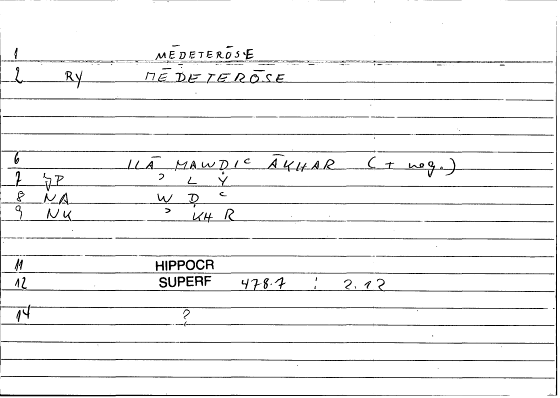 1 MĒDETERŌSE
2 Ry MĒDETERŌSE
6 ILĀ MAWDIᶜ ĀKHAR (+ neg.)
7 P ʾ L Y
8 NA W D ᶜ
9 NK ʾ KH R
11 HIPPOCR
12 SUPERF 478.7 : 2.12
14 ?